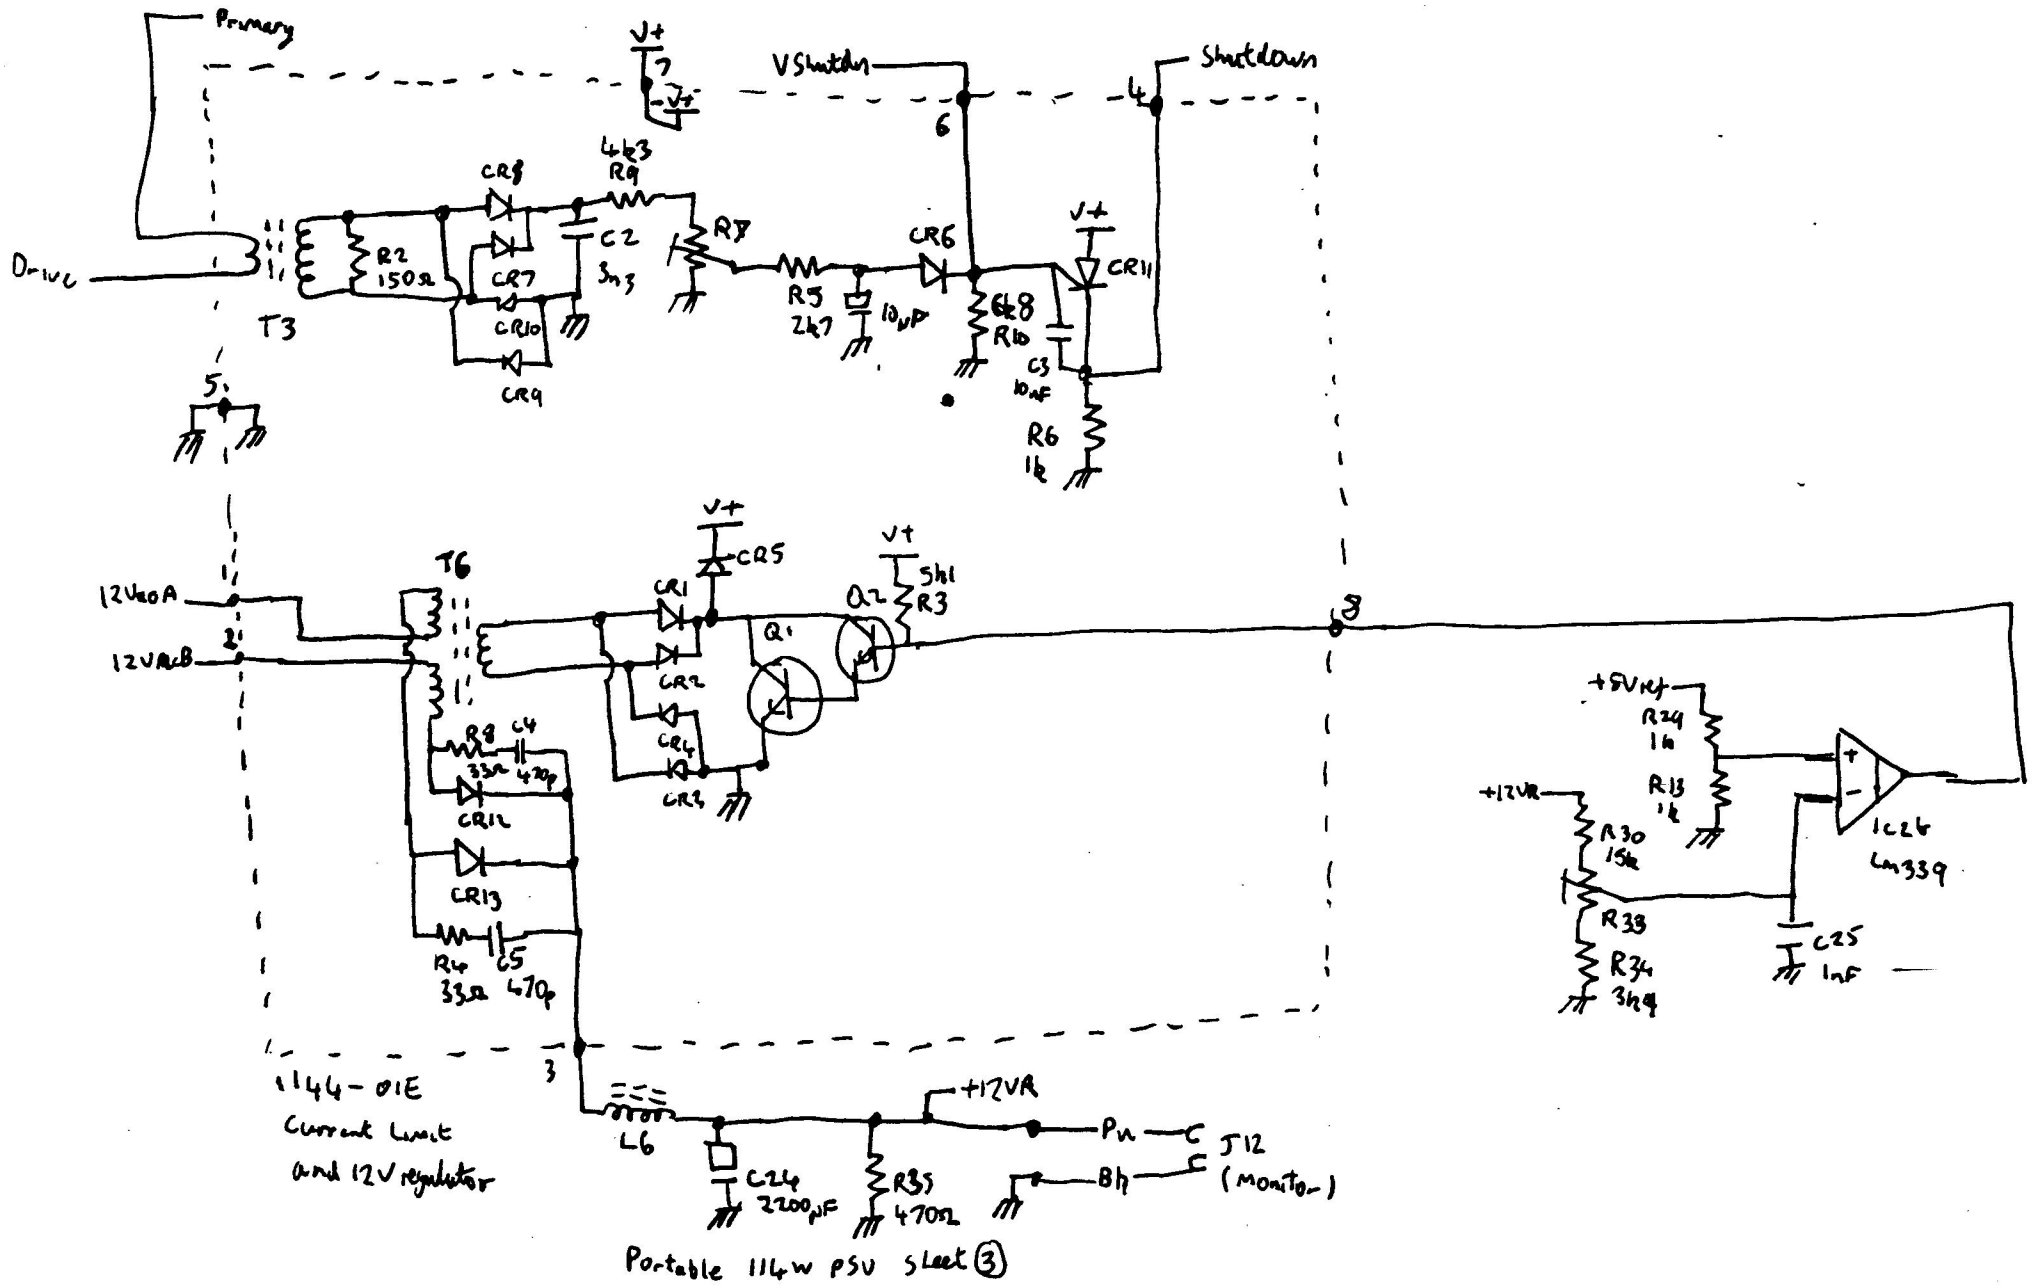 Primary
V+
7
V+
VShutdn
6
4
Shutdown
Drive
T3
R2
150Ω
CR8
CR7
CR10
CR9
4k3
R9
C2
3n3
R7
R5
2k7
10µF
CR6
6k8
R10
V+
CR11
C3
10nF
R6
1k
5
1
12VacA
2
12VAcB
T6
V+
CR5
CR1
CR2
CR4
CR3
Q1
Q2
V+
5k1
R3
8
R8
33Ω
C4
470p
CR12
CR13
R4
33Ω
C5
470p
+5Vref
R29
1k
R13
1k
+12VR
R30
15k
R33
R34
3k9
C25
1nF
+
-
IC2b
LM339
3
1144-01E
Current Limit
and 12V regulator
L6
C24
2200µF
R35
470Ω
+12VR
Pn
Bk
J12
(Monitor)
Portable 114W PSU Sheet 3